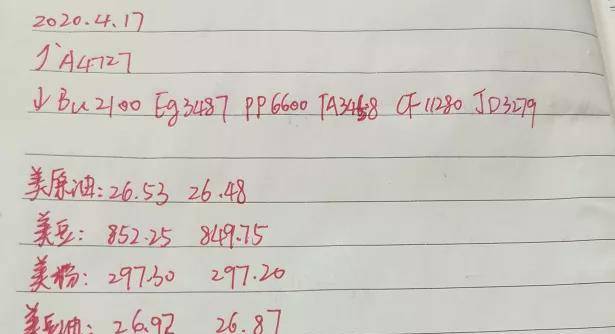 2020.4.17
↑A4727
↓Bu2100 Eg3487 PP6600 TA3468 CF11280 JD3279
美原油:26.53 26.48
美豆: 852.25 849.75
美粉: 297.30 297.20
美豆油: 26.92 26.87